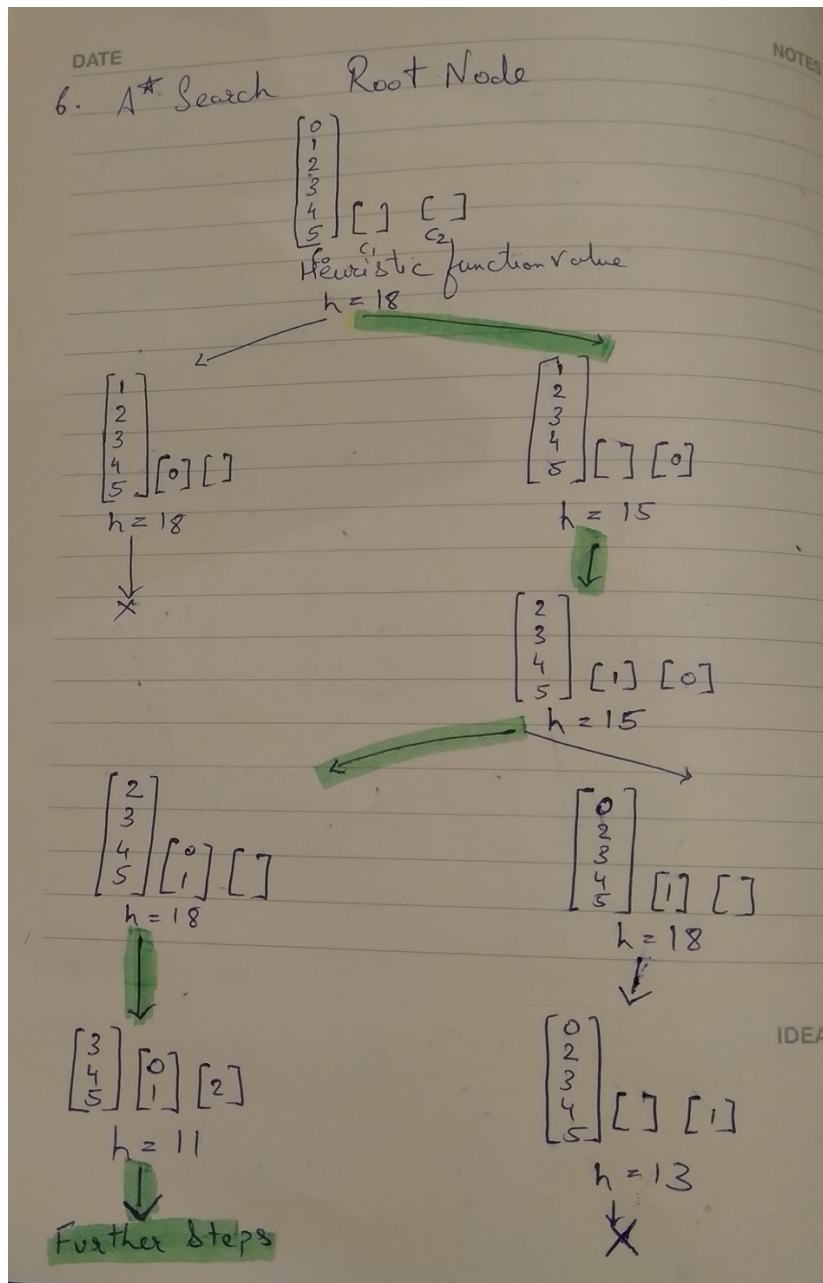 DATE
NOTES
6. A* Search Root Node
0
1
2
3
4
5
[ ] [ ]
C0 C1 C2
Heuristic function value
h = 18
1
2
3
4
5
[0] [ ]
h = 18
X
1
2
3
4
5
[ ] [0]
h = 15
2
3
4
5
[1] [0]
h = 15
2
3
4
5
[0
1] [ ]
h = 18
0
2
3
4
5
[1] [ ]
h = 18
3
4
5
[0
1] [2]
h = 11
Further Steps
IDEA
0
2
3
4
5
[ ] [1]
h = 13
X